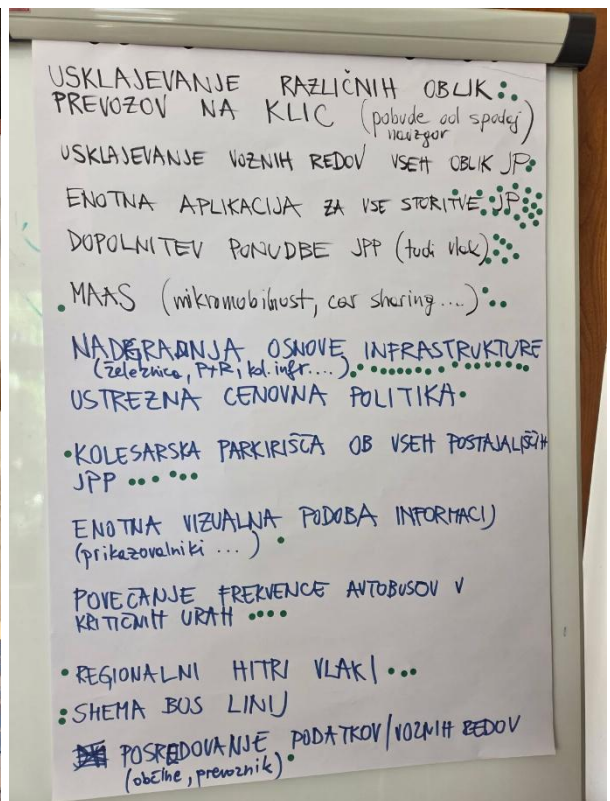 USKLAJEVANJE RAZLIČNIH OBLIK
PREVOZOV NA KLIC (pobude od spodaj
navzgor)
USKLAJEVANJE VOZNIH REDOV VSEH OBLIK JP
ENOTNA APLIKACIJA ZA VSE STORITVE JP
DOPOLNITEV PONUDBE JPP (tudi vlak)
MAAS (mikromobilnost, car sharing....)
NADGRADNJA OSNOVE INFRASTRUKTURE
(železnica, P+R, kol. infr....)
USTREZNA CENOVNA POLITIKA
KOLESARSKA PARKIRIŠČA OB VSEH POSTAJALIŠČIH
JPP
ENOTNA VIZUALNA PODOBA INFORMACIJ
(prikazovalniki ...)
POVEČANJE FREKVENCE AVTOBUSOV V
KRITIČNIH URAH
REGIONALNI HITRI VLAKI
SHEMA BUS LINIJ
POSREDOVANJE PODATKOV/VOZNIH REDOV
(občine, prevoznik)